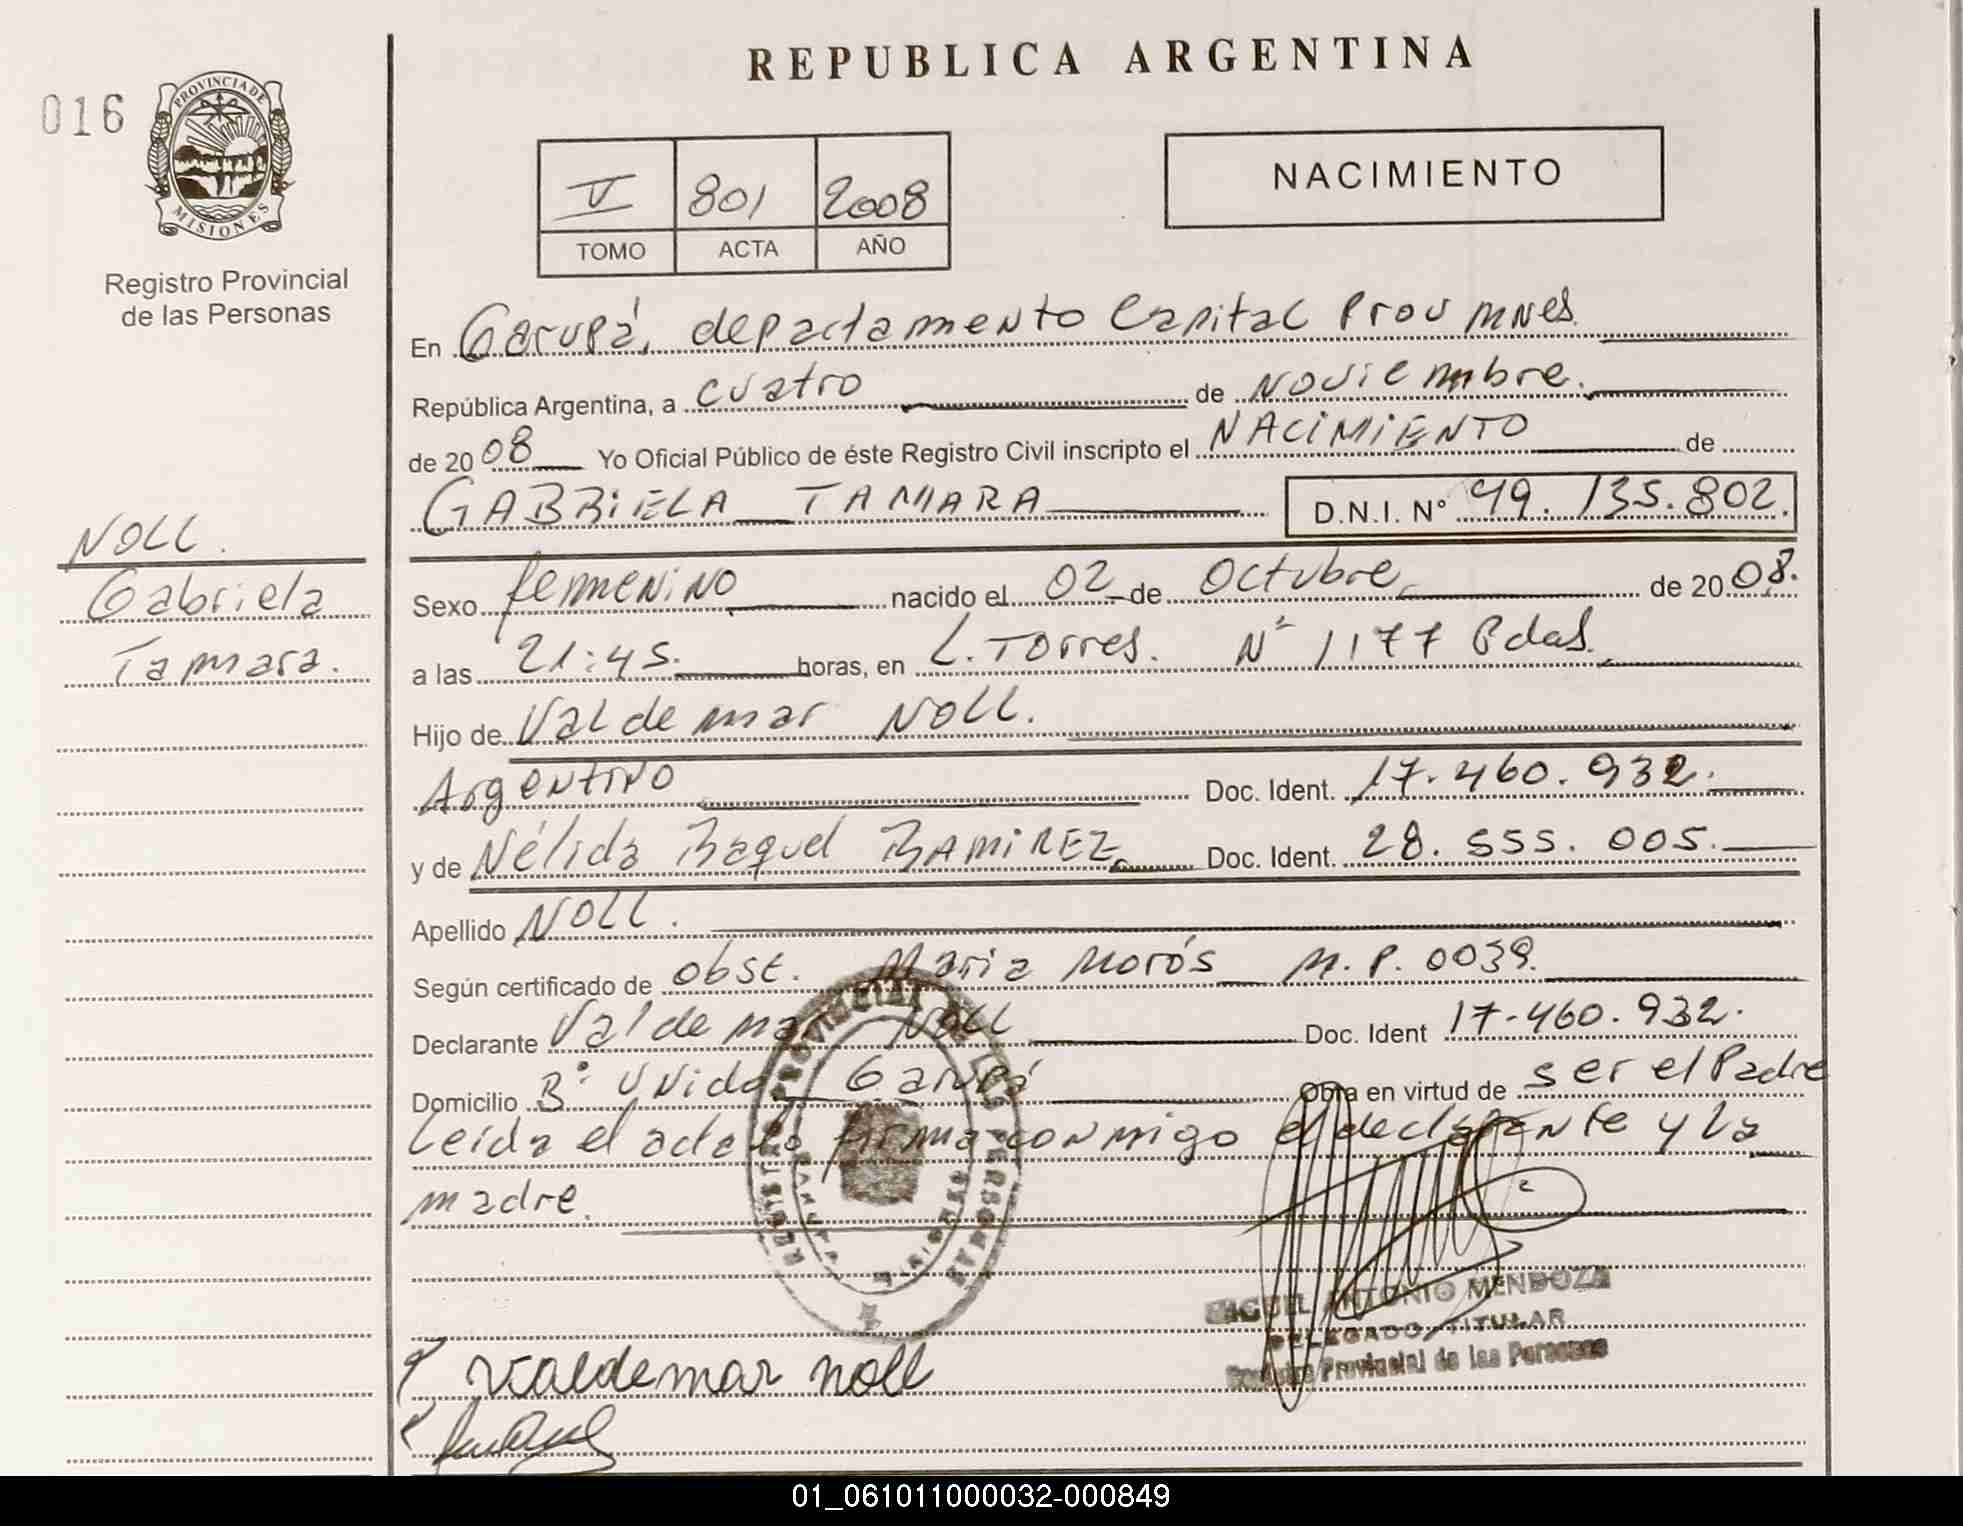 REPUBLICA ARGENTINA
016
PROVINCIA DE
MISIONES
Registro Provincial
de las Personas
V 801 2008
TOMO ACTA AÑO
NACIMIENTO
En Garupá, departamento Capital Prov Mnes.
República Argentina, a cuatro de Noviembre.
de 2008 Yo Oficial Público de éste Registro Civil inscripto el NACIMIENTO de
GABRIELA TAMARA D.N.I. N° 49.135.802.
NOLL.
Gabriela
Tamara.
Sexo femenino nacido el 02 de Octubre de 2008.
a las 21:45. horas, en L. Torres. N° 1177 Pdas.
Hijo de Valdemar NOLL.
Argentino Doc. Ident. 17.460.932.
y de Nélida Raquel RAMIREZ Doc. Ident. 28.555.005.
Apellido NOLL.
Según certificado de obst. Maria Morós M.P. 0039.
Declarante Valdemar NOLL Doc. Ident 17.460.932.
Domicilio B° Unido Garupá Obra en virtud de ser el Padre
Leída el acta la firma conmigo el declarante y la
madre.
REGISTRO PROVINCIAL DE LAS PERSONAS
MIGUEL ANTONIO MENDOZA
DELEGADO TITULAR
Registro Provincial de las Personas
Valdemar Noll
01_061011000032-000849